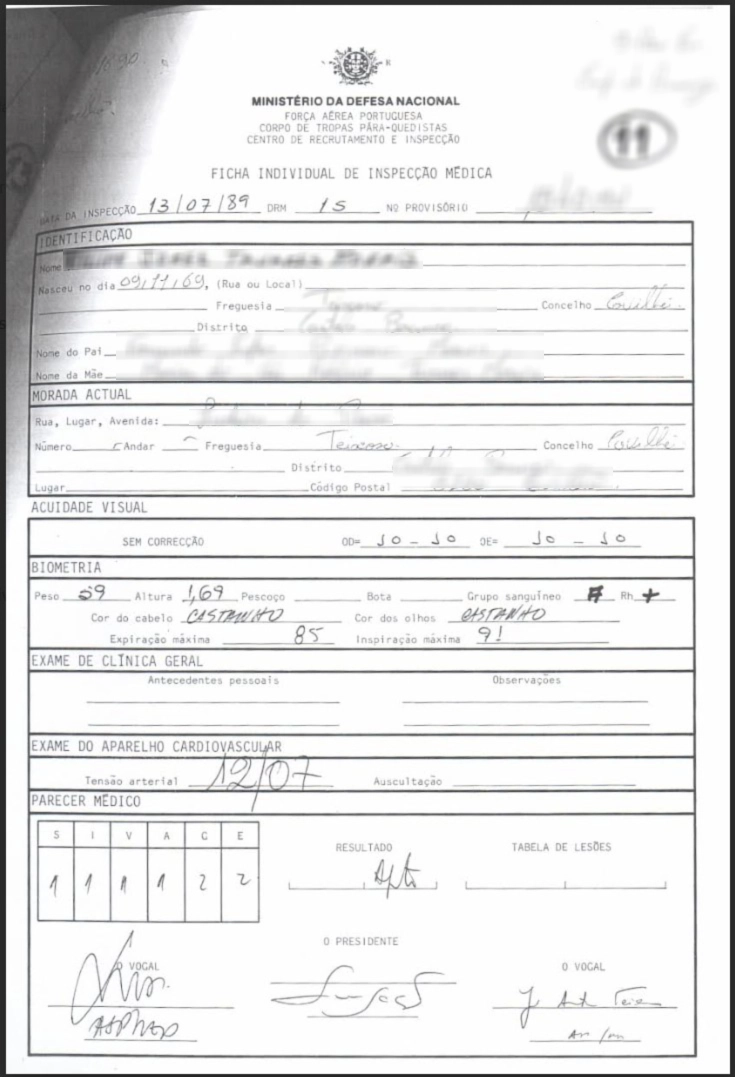 MINISTÉRIO DA DEFESA NACIONAL
FORÇA AÉREA PORTUGUESA
CORPO DE TROPAS PÁRA-QUEDISTAS
CENTRO DE RECRUTAMENTO E INSPECÇÃO
11
FICHA INDIVIDUAL DE INSPECÇÃO MÉDICA
DATA DA INSPECÇÃO 13/07/89 DRM 15 Nº PROVISÓRIO
IDENTIFICAÇÃO
Nome
Nasceu no dia 09/11/69, (Rua ou Local)
Freguesia Concelho Covilhã
Distrito
Nome do Pai
Nome da Mãe
MORADA ACTUAL
Rua, Lugar, Avenida:
Número Andar Freguesia Teixoso Concelho Covilhã
Distrito
Lugar Código Postal
ACUIDADE VISUAL
SEM CORRECÇÃO OD= 10 - 10 OE= 10 - 10
BIOMETRIA
Peso 59 Altura 1,69 Pescoço Bota Grupo sanguíneo Rh +
Cor do cabelo CASTANHO Cor dos olhos CASTANHO
Expiração máxima 85 Inspiração máxima 91
EXAME DE CLÍNICA GERAL
Antecedentes pessoais Observações
EXAME DO APARELHO CARDIOVASCULAR
Tensão arterial 12/07 Auscultação
PARECER MÉDICO
S I V A C E
1 1 1 1 2 2
RESULTADO TABELA DE LESÕES
Apto
O PRESIDENTE
O VOGAL O VOGAL